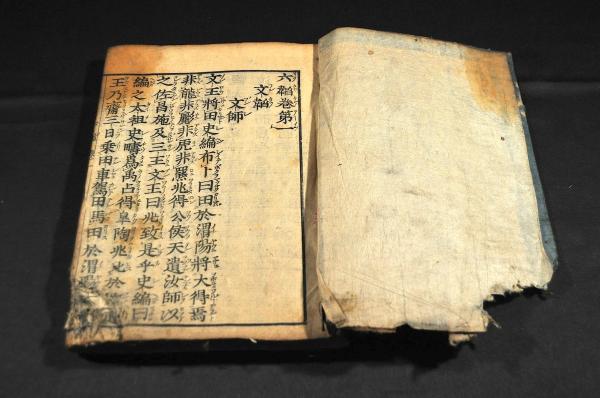 六韜卷第一
文韜
文師
文王將田史編布卜曰田於渭陽將大得焉
非龍非彲非虎非羆兆得公侯天遺汝師以
之佐昌施及三王文王曰兆致是乎史編曰
編之太祖史疇爲禹占得皐陶兆比於
王乃齋三日乘田車駕田馬田於渭